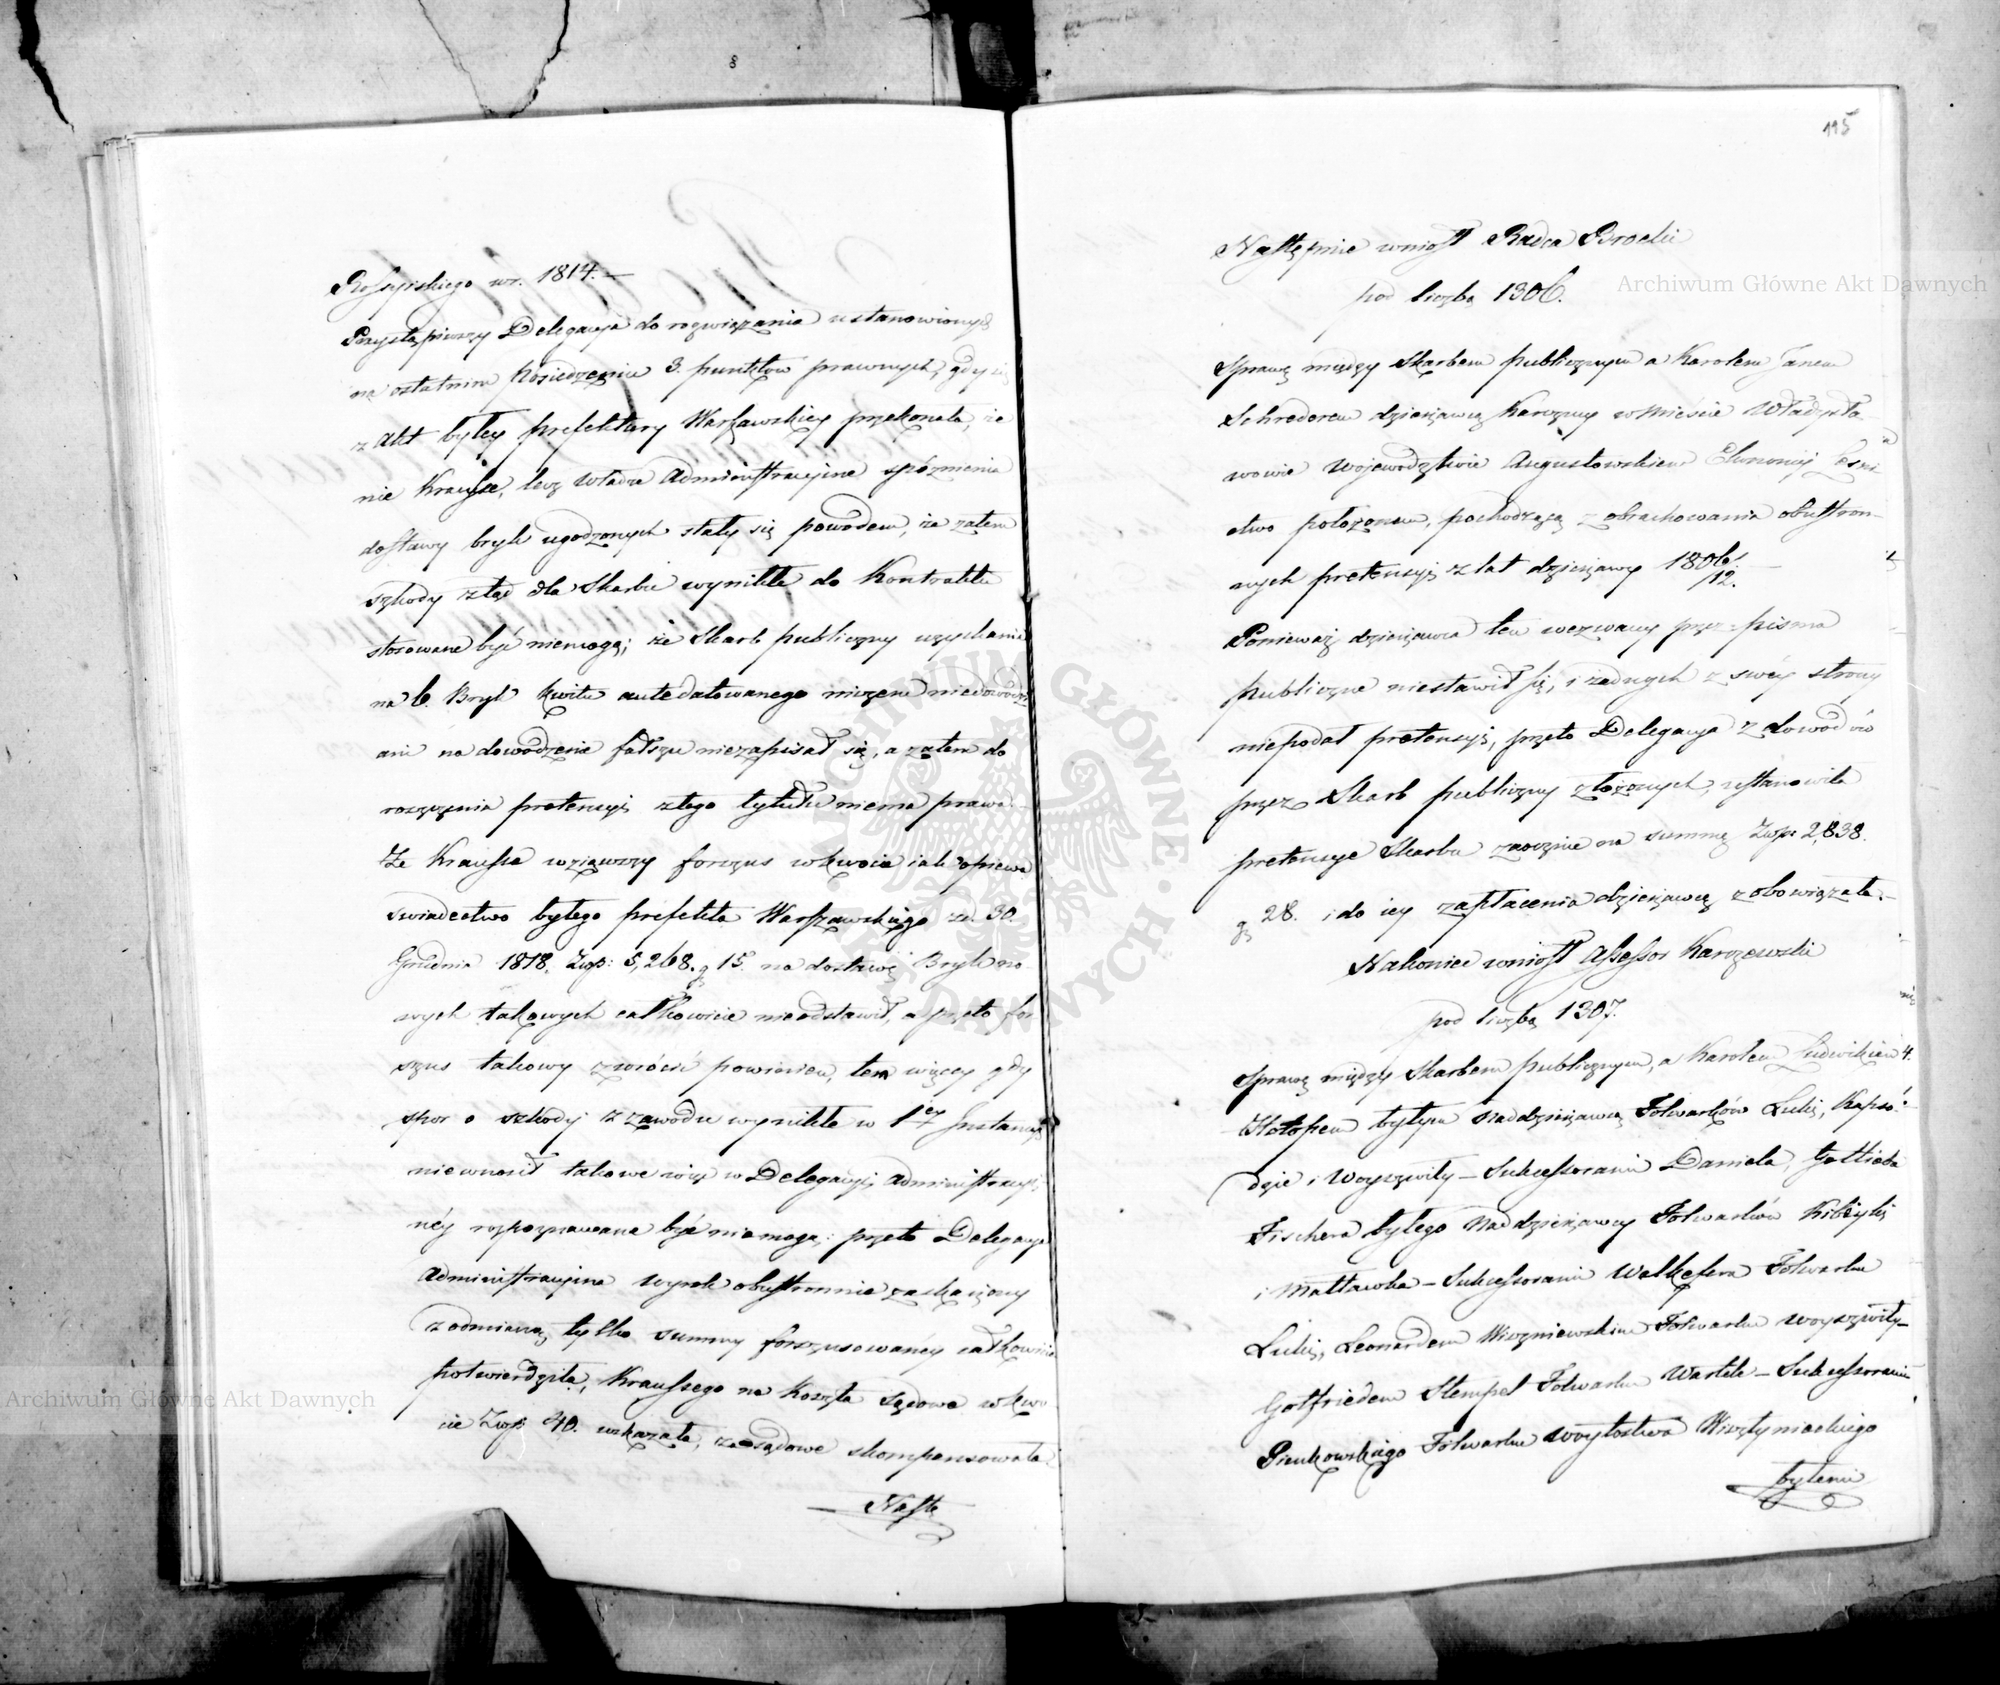 Rossyiskiego w r. 1814. —
Przystąpiwszy Delegacya do rozwiązania ustanowionych
na ostatnim Posiedzeniu 3. punktów prawnych, gdy się
z Akt byłey prefektury Warszawskiey przekonała, że
nie Krausse, lecz Władze Administracyine spóźnienia
dostawy bryk ugodzonych stały się powodem, że zatem
szkody ztąd dla Skarbu wynikłe do Kontraktu
stosowane być niemogą; że Skarb publiczny uzyskania
na 6. Bryk kwitu antedatowanego niczem niedowodzi
ani na dowodzenie fałszu niezapisał się, a zatem do
roszczenia pretensyi z tego tytułu niema prawa.
Że Krausse wziąwszy forszus w kwocie jak opiewa
świadectwo byłego prefekta Warszawskiego z d. 30.
Grudnia 1818. Złp: 5,268. g 15. na dostawę Bryk no-
wych takowych całkowicie nieodstawił, a przeto for
szus takowy zwrócić powinien, tem więcey gdy
spor o szkody z zawodu wynikłe w 1ey Instancyi
niewnosił takowe więc w Delegacyi Administracyi-
néy rozpoznawane być niemogą; przeto Delegacya
Administracyina Wyrok obustronnie zaskarżony
z odmianą tylko summy forszusowanéy całkowicie
potwierdziła, Kraussego na Koszta sądowe w kwo
cie Złp: 40. wskazała, zasądowe skompensowała
Nastę
115
Następnie wniosł Radca Brocki
pod liczbą 1306.
Sprawę między Skarbem publicznym a Karolem Janem
Schröderem dzierżawcą Karczmy w mieście Władysła
wowie Województwie Augustowskiem
ctwo położonem, pochodzącą z obrachowania obustron-
nych pretensyi z lat dzierżawy 1806/12.
Ponieważ dzierżawca ten wezwany przez pisma
publiczne niestawił się, i żadnych z swéy strony
niepodał pretensyi, przeto Delegacya z dowodów
przez Skarb publiczny złożonych, ustanowiła
pretensye Skarbu zaocznie na summę Złp: 2,838.
g 28. i do iey zapłacenia dzierżawcę zobowiązała.—
Nakoniec wniosł Assessor Karczewski
pod liczbą 1307.
Sprawę między Skarbem publicznym, a Karolem Ludwikiem
byłym Naddzierżawcą Folwarków
i Woyszwiły — Sukcessorami Daniela, Gottlieba
Fischera byłego Naddzierżawcy Folwarków
i — Sukcessorami Folwarku
Leonardem Wiszniewskim Folwarku Woyszwiły—
Gotfriedem Stempel Folwarku — Sukcessorami
Pieńkowskiego Folwarku Woytostwa Wisztynieckiego
byłemi
Archiwum Główne Akt Dawnych
Archiwum Główne Akt Dawnych
ARCHIWUM GŁÓWNE AKT DAWNYCH